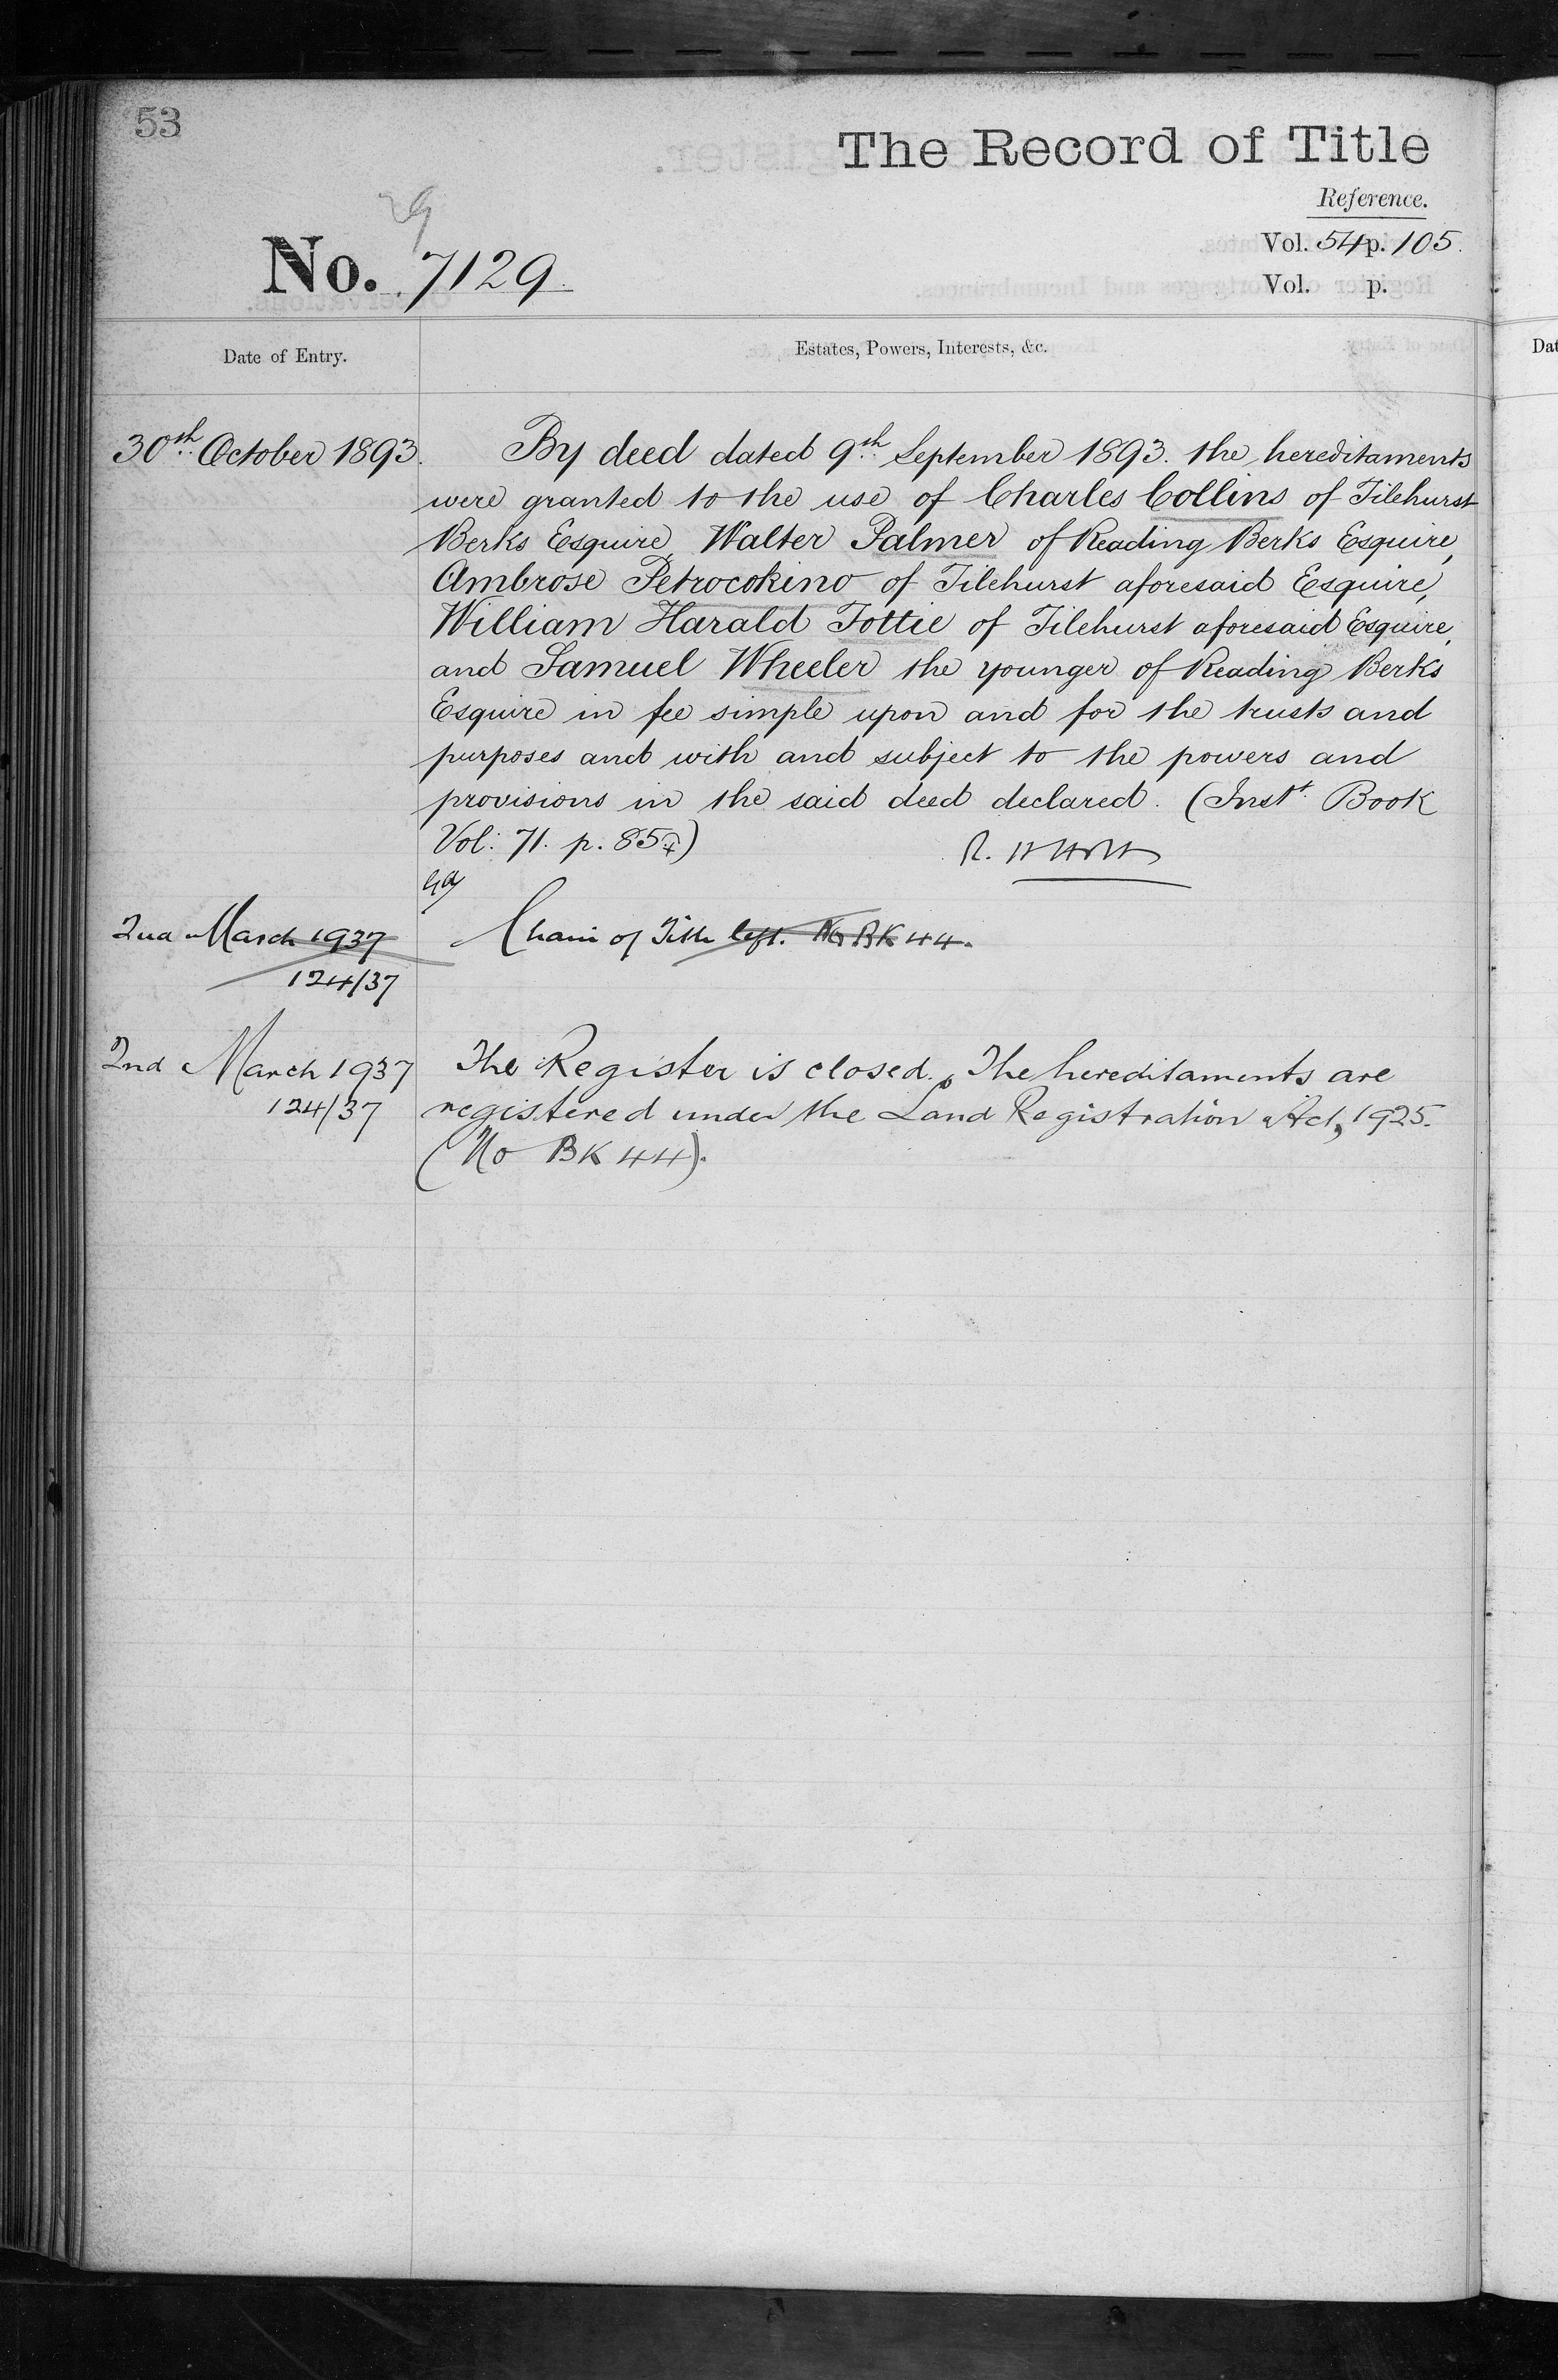 53
The Record of Title
Reference.
29
No. 7129.
Vol. 54 p. 105.
Vol. p.
Date of Entry.
Estates, Powers, Interests, &c.
Dat
30th October 1893.
By deed dated 9th September 1893. the hereditaments
were granted to the use of Charles Collins of Tilehurst
Berks Esquire, Walter Palmer of Reading Berks Esquire,
Ambrose Petrocokino of Tilehurst aforesaid Esquire,
William Harald Tottie of Tilehurst aforesaid Esquire,
and Samuel Wheeler the younger of Reading Berks
Esquire in fee simple upon and for the trusts and
purposes and with and subject to the powers and
provisions in the said deed declared. (Inst. Book
Vol: 71. p. 85)
R. H Holt
2nd March 1937
Chain of Title left. No BK 44.
124/37
2nd March 1937
The Register is closed. The hereditaments are
124/37
registered under the Land Registration Act, 1925.
(No BK 44).